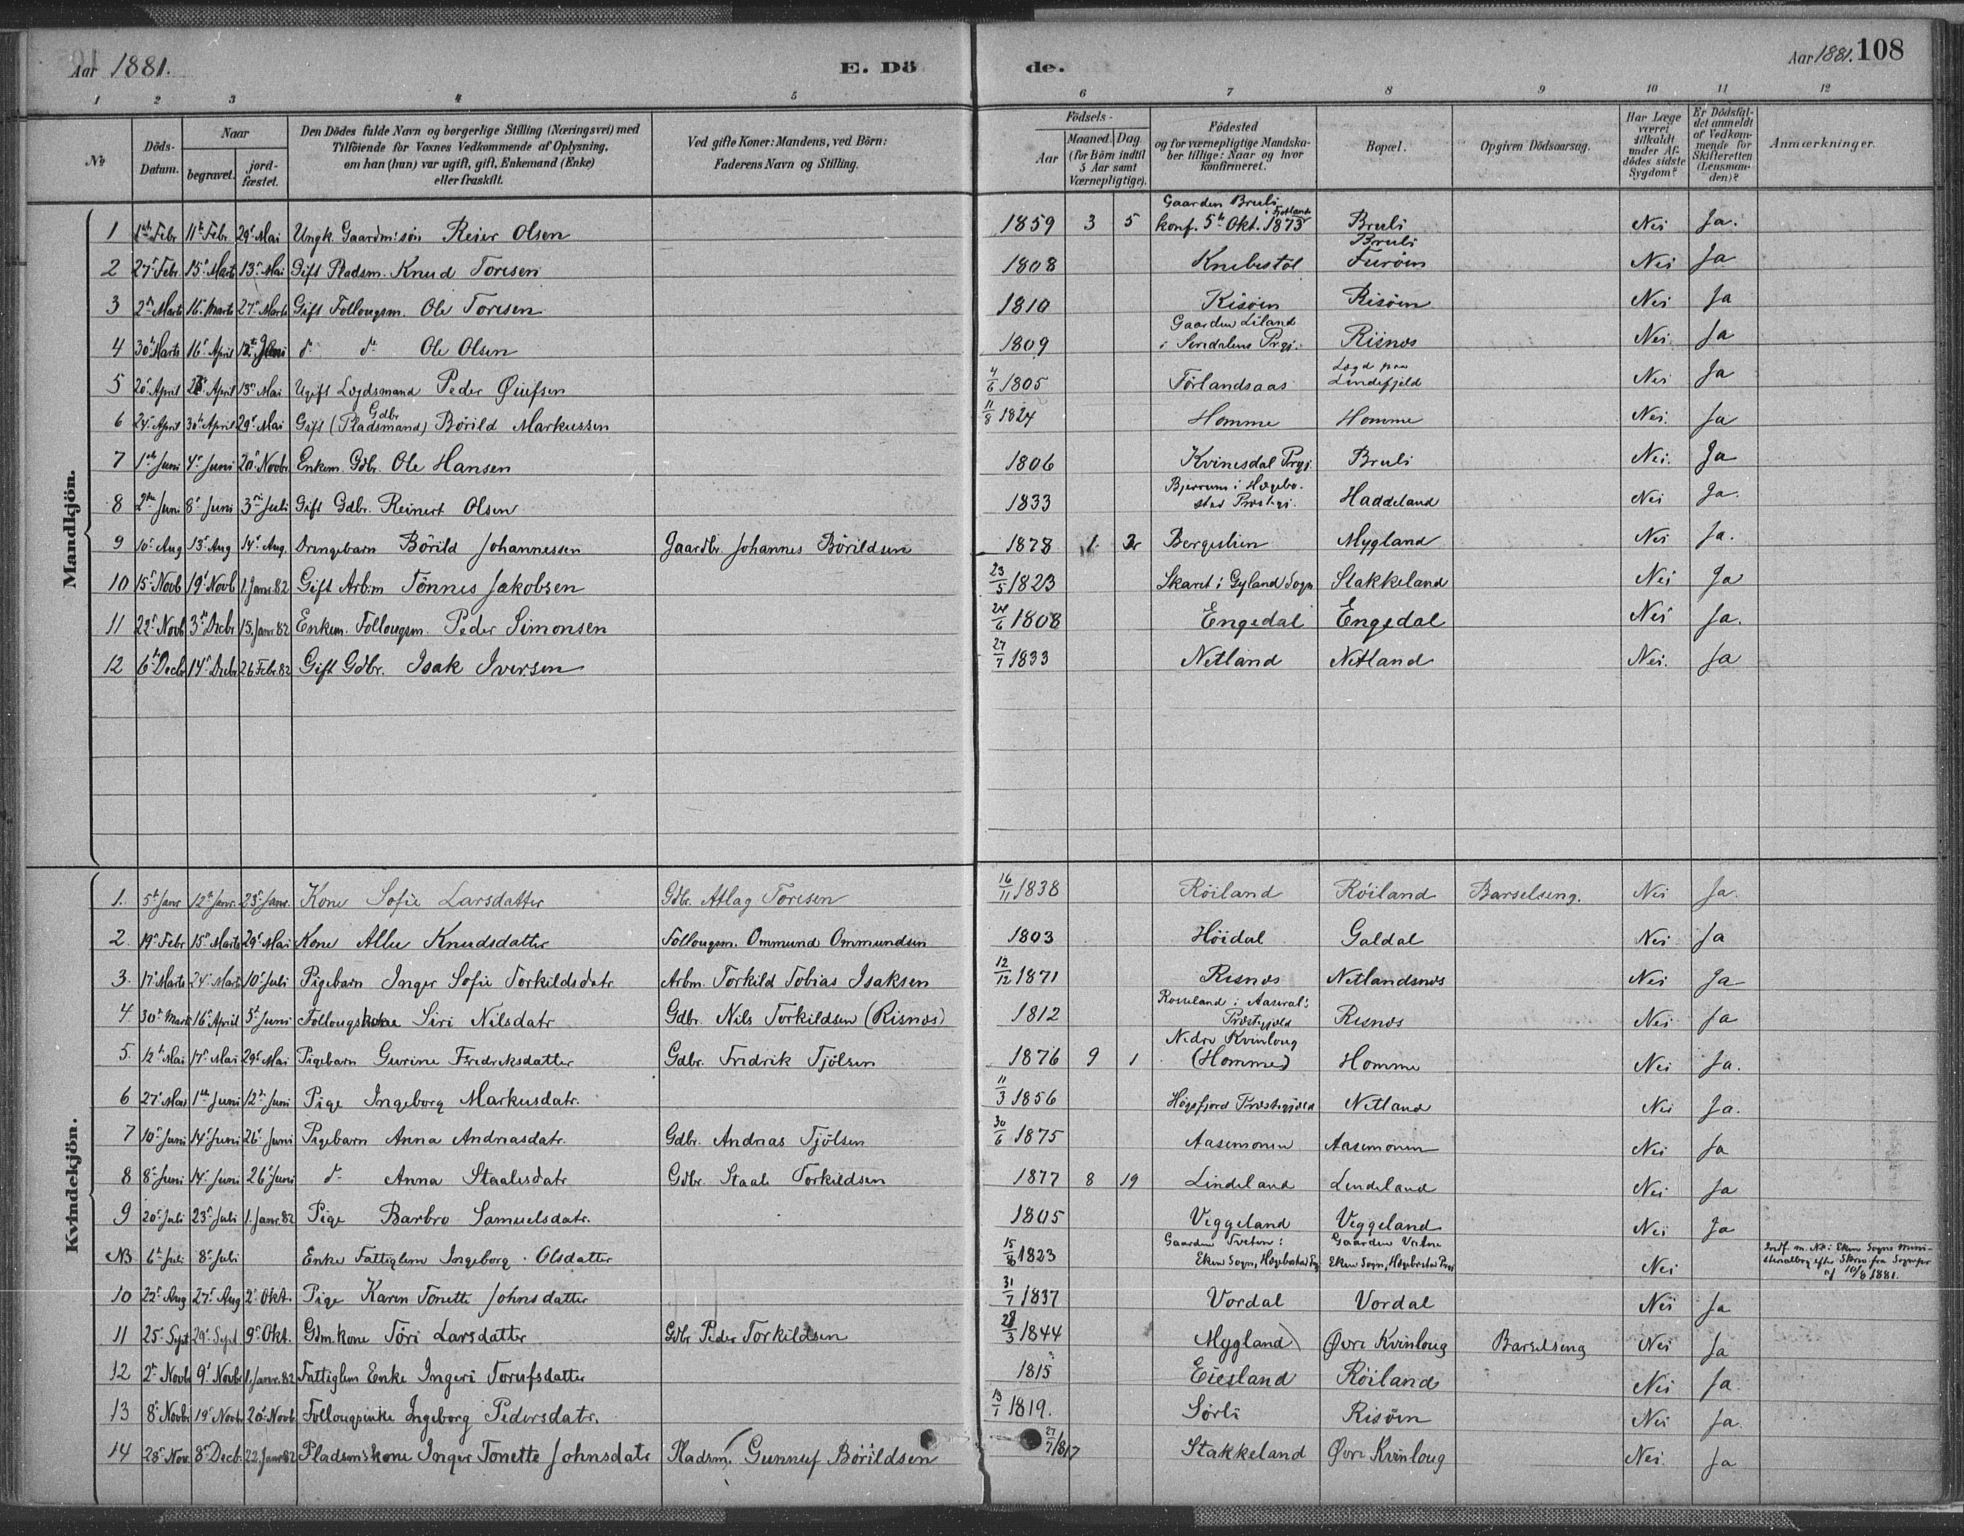 Aar 1881. E. Dö de. Aar 1881. 108
1 2 3 4 5 6 7 8 9 10 11 12
№ Döds-Datum. Naar begravet. jord-fæstet. Den Dödes fulde Navn og borgerlige Stilling (Næringsvei) med Tilföiende for Voxnes Vedkommende af Oplysning, om han (hun) var ugift, gift, Enkemand (Enke) eller fraskilt. Ved gifte Koner: Mandens, ved Börn: Faderens Navn og Stilling. Födsels- Aar Maaned. Dag. (for Börn indtil 5 Aar samt Værnepligtige). Födested og for værnepligtige Mandskaber tillige: Naar og hvor konfirmeret. Bopæl. Opgiven Dödsaarsag. Har Læge været tilkaldt under Afdödes sidste Sygdom? Er Dödsfaldet anmeldt af Vedkommende for Skifteretten (Lensmanden)? Anmærkninger.
Mandkjön.
1 Febr 11te Febr 29de Mai Ungk. Gaardm.søn Reier Olsen 1859 3 5 Gaarden Bruli konf. 5te Okt. 1873 Bruli Nei Ja.
2 27de Febr. 15de Marts 13de Mai Gift Pladsm. Knud Toresen 1808 Knibestöl Bruli Furöen Nei Ja
3 2den Marts 16de Marts 27de Marts Gift Follougsm. Ole Toresen 1810 Risöen Risöen Nei Ja
4 30te Marts 16de April do do Ole Olsen 1809 Gaarden Liland i Siredalens Prgj. Risnæs Nei Ja
5 20de April April 13de Mai Ugift Lægdsmand Peder 4/6 1805 Förlandsaas Lægd paa Lindefjeld Nei Ja
6 24de April 30te April 29de Mai Gift (Pladsmand) Gdbr Börild Markussen 11/8 1824 Homme Homme Nei. Ja
7 1ste Juni 4de Juni 20de Novbr Enkem. Gdbr. Ole Hansen 1806 Kvinesdal Prgj. Bruli Nei. Ja
8 2den Juni 8de Juni 3die Juli Gift Gdbr. Reinert Olsen 1833 Bjerrum i Hægebostad Præstgj. Haddeland Nei Ja.
9 10de Aug 13de Aug 14de Aug. Drengebarn Börild Johannessen Gaardbr. Johannes Börildsen 1878 1 Bergelien Mygland Nei Ja.
10 15de Novb 19de Novb 1. Janr. 82 Gift Arb.m Tönnes Jakobsen 23/5 1823 Skaret i Gyland Sogn Stakkeland Nei Ja
11 22de Novb 3die Decbr 15. Janr. 82 Enkem. Follougsm. Peder Simonsen 24/6 1808 Engedal Engedal Nei Ja.
12 6te Decbr 14de Decbr 26 Febr. 82 Gift Gdbr. Isak Iversen 27/7 1833 Netland Netland Nei. Ja
Kvindekjön.
1. 5te Janr 12te Janr. 23de Janr. Kone Sofie Larsdatter Gdbr. Atlag Toresen 16/11 1838 Röiland Röiland Barselseng. Nei Ja.
2. 19de Febr 15de Marts 29de Mai Kone Knudsdatter Follougsm. Ommund Ommundsen 1803 Höidal Galdal Nei Ja
3. 17de Marts 24de Marts 10de Juli Pigebarn Inger Sofie Torkildsdatr Arbm. Torkild Tobias Isaksen 12/12 1871 Risnæs Netlandsnæs Nei Ja
4 30te Marts 16de April 5te Juni Follougskone Siri Nilsdatr Gdbr. Nils Torkildsen (Risnæs) 1812 i Aaseral Præstegjæld Risnæs Nei Ja
5. 12te Mai 17de Mai 29de Mai Pigebarn Gurine Fredriksdatter Gdbr. Fredrik Tjölsen 1876 9 1 Nedre Kvinloug (Homme) Homme Nei Ja.
6 27de Mai 1ste Juni 12te Juni Pige Ingeborg Markusdatr. 11/3 1856 Högsfjord Præstegjæld Netland Nei Ja.
7 10de Juni 14de Juni 26de Juni Pigebarn Anna Andreasdatr. Gdbr. Andreas Tjölsen 30/6 1875 Aasemonen Aasemonen Nei Ja
8 8de Juni 14de Juni 26de Juni do Anna Staalesdatr Gdbr. Staale Torkildsen 1877 8 19 Lindeland Lindeland Nei Ja
9 20de Juli 23de Juli 1. Janr. 82 Pige Barbro Samuelsdatr. 1805 Veggeland Veggeland Nei Ja
NB 6te Juli 8de Juli Enke Fattiglem Ingeborg Olsdatter 15/8 1823 Gaarden Tveten i Eken Sogn, Hægebostad Prgj Gaarden Eken Sogn, Hægebostad Prgj Nei Indf. m. No i Eken Sogns Ministerialbog efter Skriv. fra Sognepr af 10/8 1881.
10 22de Aug 27de Aug 2den Okt. Pige Karen Tonette Johnsdatter 31/7 1837 Vordal Vordal Nei Ja
11 25de Sept 29de Sept 9de Okt. Gdm.kone Töri Larsdatter Gdbr Peder Torkildsen 28/3 1844 Mygland Øvre Kvinloug Barselseng Nei Ja
12 2den Novb 9de Novbr 1. Janr. 82 Fattiglem Enke Ingeri Torufsdatter 1815 Eiesland Röiland Nei Ja.
13 8de Novbr 19de Novbr 20de Novb Follougsenke Ingeborg Pedersdatr. 13/1 1819. Sörli Risöen Nei Ja.
14 28de Nov. 8de Decb. 22. Janr 82 Pladsmskone Inger Tonette Johnsdatr Pladsm. Gunnuf Börildsen 27/7 1817 Stakkeland Øvre Kvinloug Nei. Ja